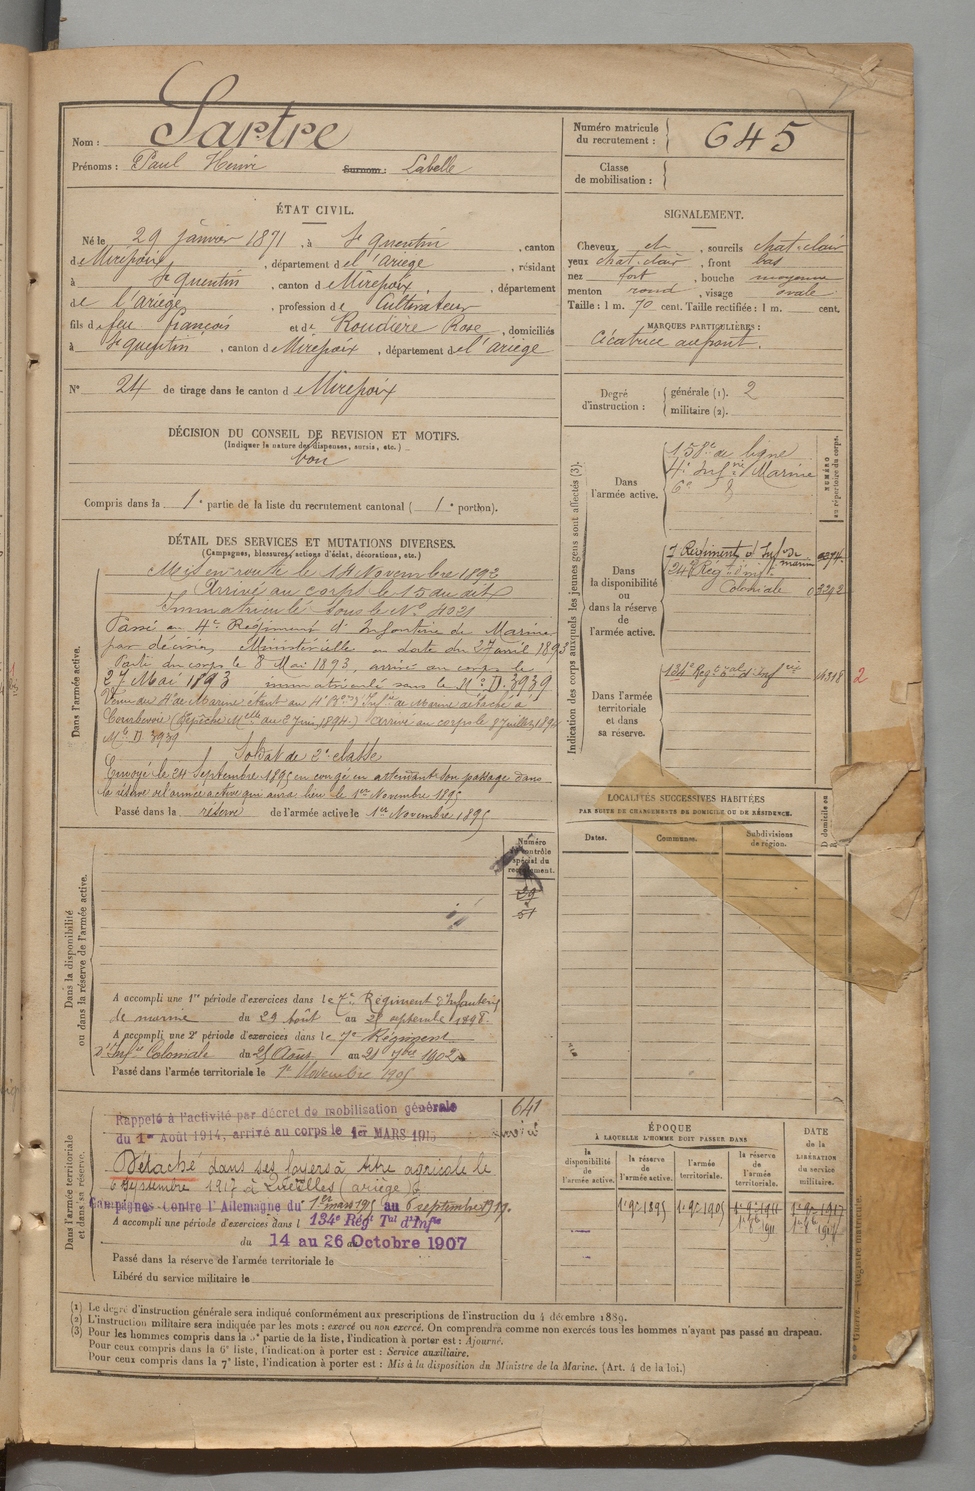 Nom : Sartre
Prénoms : Paul Henri Surnom : Labelle
Numéro matricule du recrutement : 645
Classe de mobilisation :
ÉTAT CIVIL.
Né le 29 janvier 1871, à St quentin, canton
de Mirepoix, département de l'Ariège, résidant
à St quentin, canton de Mirepoix, département
de l'Ariège, profession de Cultivateur
fils de feu françois et de Roudière Rose, domiciliés
à St quentin, canton de Mirepoix, département de l'ariège
N° 24 de tirage dans le canton d Mirepoix
DÉCISION DU CONSEIL DE REVISION ET MOTIFS.
(Indiquer la nature des dispenses, sursis, etc.)
bon
Compris dans la 1e partie de la liste du recrutement cantonal ( 1e portion).
DÉTAIL DES SERVICES ET MUTATIONS DIVERSES.
(Campagnes, blessures, actions d'éclat, décorations, etc.)
Dans l'armée active.
Mis en route le 14 Novembre 1892
Arrivé au corps le 15 du dit
Immatriculé sous le N° 4021
Passé au 4e Régiment d'Infanterie de Marine
par décision Ministérielle en date du 27 avril 1893
Parti du corps le 8 Mai 1893, arrivé au corps le
27 Mai 1893 immatriculé sous le N° D. 3939
Courbevoie (Dépêche Mlle du 2 Juin 1894) arrivé au corps le 8 Juillet 1894
Mle D 3939
Soldat de 2e classe
Envoyé le 24 Septembre 1895 en congé en attendant son passage dans
la réserve de l'armée active qui aura lieu le 1er Novembre 1895
Passé dans la réserve de l'armée active le 1er Novembre 1895
Dans la disponibilité ou dans la réserve de l'armée active.
Numéro du contrôle spécial du recrutement.
29
51
A accompli une 1re période d'exercices dans le 7e Régiment d'Infanterie
de marine du 29 Août au 25 septembre 1898.
A accompli une 2e période d'exercices dans le 7e Régiment
d'Infrie Coloniale du 25 Août au 21 7bre 1902
Passé dans l'armée territoriale le 1er Novembre 1905
Dans l'armée territoriale et dans sa réserve.
641
Rappelé à l'activité par décret de mobilisation générale
du 1er Août 1914, arrivé au corps le 1er MARS 1915
Détaché dans ses foyers à titre agricole le
6 septembre 1917 à (ariège)
Campagnes contre l'Allemagne du 1er mars 1915 au 6 septembre 1917.
A accompli une période d'exercices dans l 134e Régt Tal d'Infie
du 14 au 26 Octobre 1907
Passé dans la réserve de l'armée territoriale le
Libéré du service militaire le
SIGNALEMENT.
Cheveux et, sourcils chat-clair
yeux chat-clair, front bas
nez fort, bouche moyenne
menton rond, visage ovale
Taille : 1 m. 70 cent. Taille rectifiée : 1 m. cent.
MARQUES PARTICULIÈRES :
Cicatrice au front.
Degré d'instruction : générale (1). 2
militaire (2).
Indication des corps auxquels les jeunes gens sont affectés (3).
NUMÉRO au répertoire du corps.
Dans l'armée active.
158e de ligne
4e Infrie Marine
6e
Dans la disponibilité ou dans la réserve de l'armée active.
7 Régiment d'Infie de marine
24e Régt d'Infie
Coloniale 03242
Dans l'armée territoriale et dans sa réserve.
134e Régt tal d'Infrie 2
LOCALITÉS SUCCESSIVES HABITÉES
PAR SUITE DE CHANGEMENTS DE DOMICILE OU DE RÉSIDENCE.
Dates. Communes. Subdivisions de région. D domicile ou R.
ÉPOQUE
À LAQUELLE L'HOMME DOIT PASSER DANS
la disponibilité de l'armée active. la réserve de l'armée active. l'armée territoriale. la réserve de l'armée territoriale.
DATE de la LIBÉRATION du service militaire.
1er 9bre 1895 1er 9bre 1905 1er 9bre 1911 1er 9bre 1917
(1) Le degré d'instruction générale sera indiqué conformément aux prescriptions de l'instruction du 4 décembre 1889.
(2) L'instruction militaire sera indiquée par les mots : exercé ou non exercé. On comprendra comme non exercés tous les hommes n'ayant pas passé au drapeau.
(3) Pour les hommes compris dans la 5e partie de la liste, l'indication à porter est : Ajourné.
Pour ceux compris dans la 6e liste, l'indication à porter est : Service auxiliaire.
Pour ceux compris dans la 7e liste, l'indication à porter est : Mis à la disposition du Ministre de la Marine. (Art. 4 de la loi.)